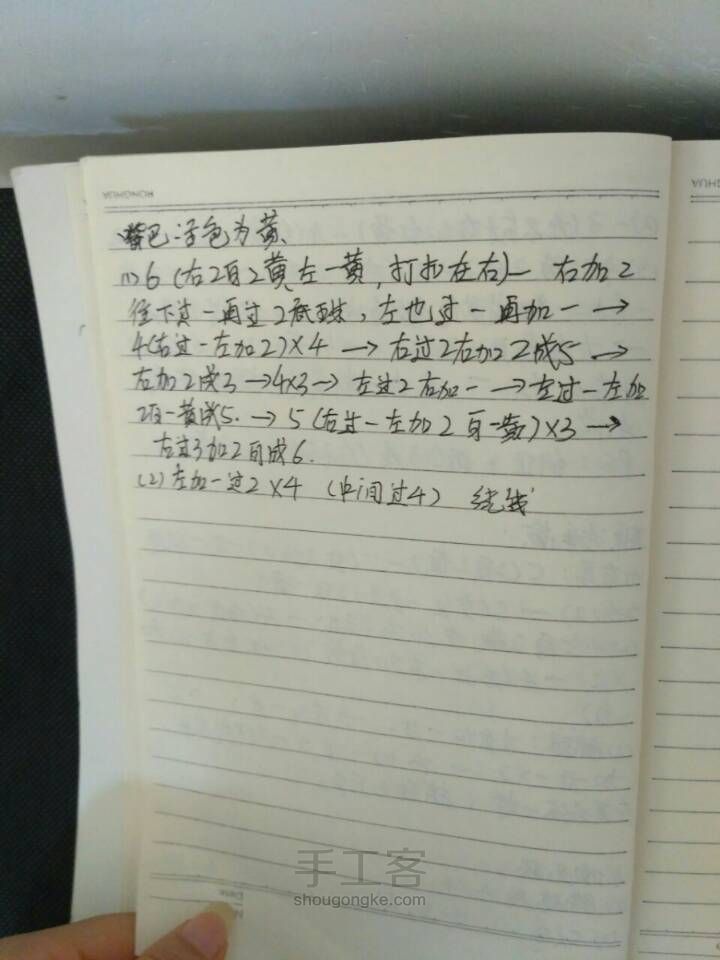 嘴巴:活色为黄、
(1)6 (右2白2黄左一黄,打扣在右)— 右加2
往下过一再过2底珠,左也过一再加一 →
4(右过一左加2)×4 → 右过2右加2成5 →
右加2成3 →4×3→ 左过2右加一 → 左过一左加
2白一黄成5. → 5(右过一左加2白一黄)×3 →
右过3加2白成6.
(2)左加一过2×4 (中间过4) 绕线
RONGHUA
手工客
shougongke.com